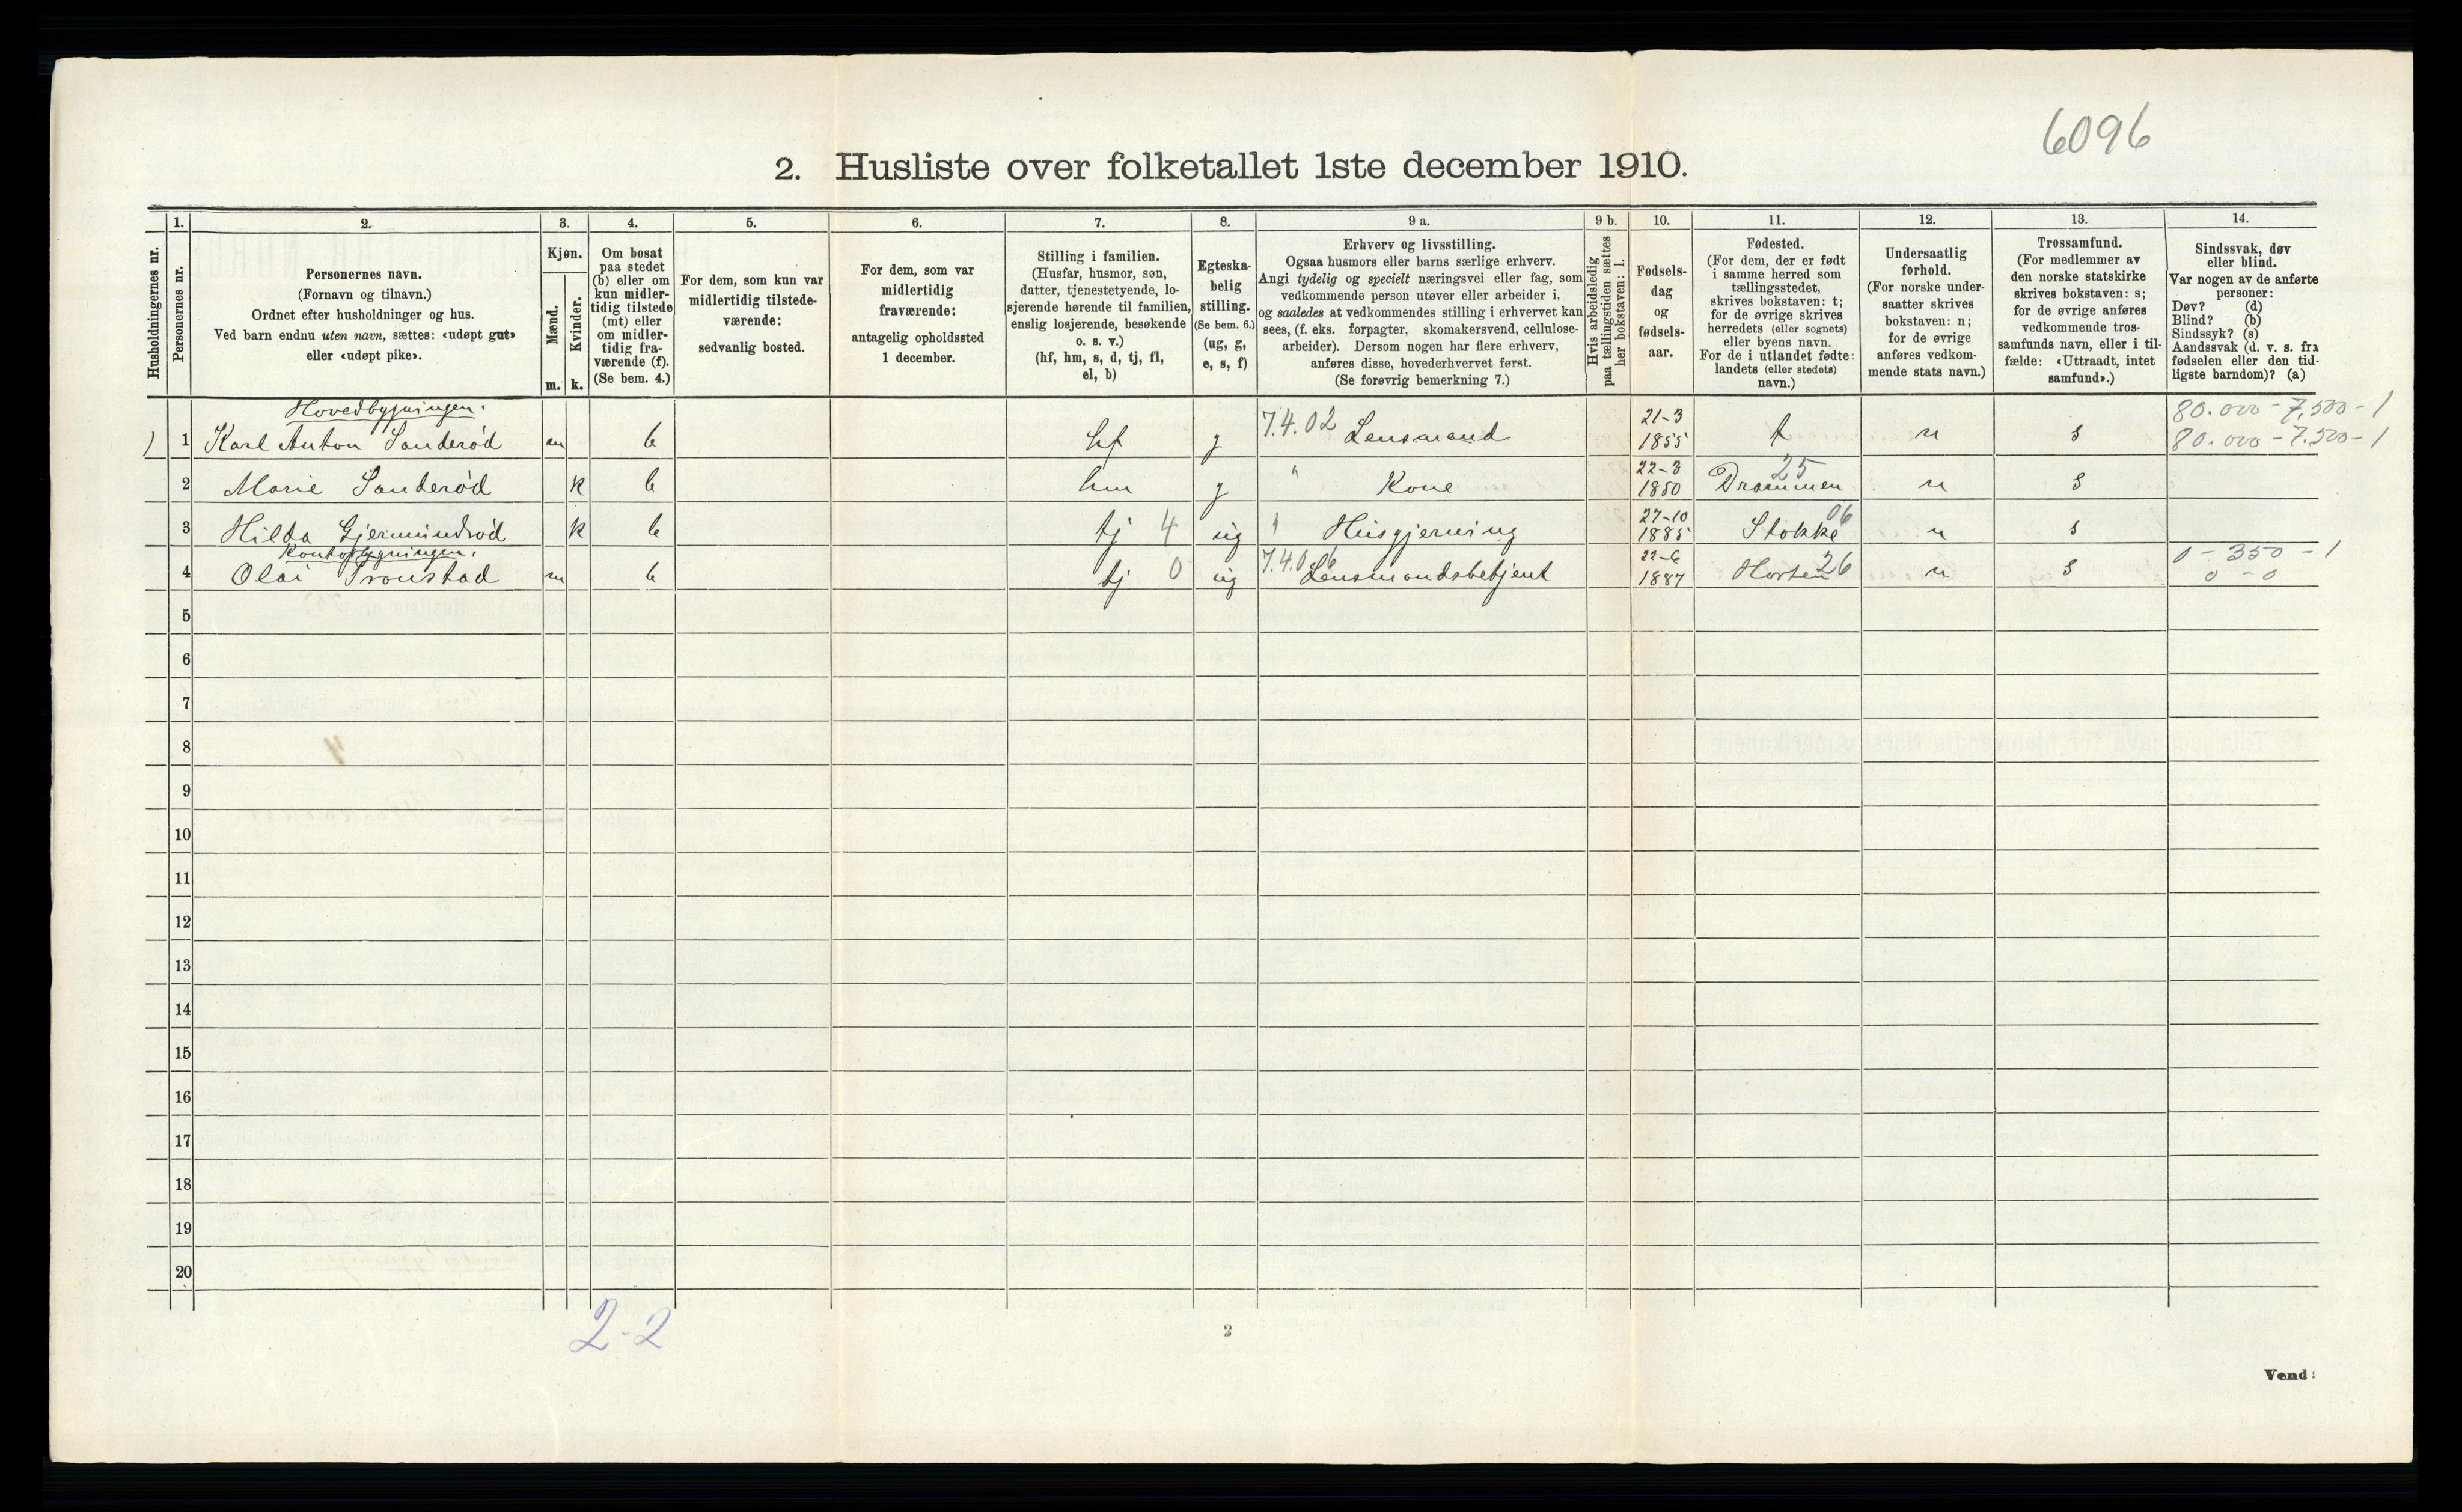 6096
2. Husliste over folketallet 1ste december 1910.
Husholdningernes nr.
1.
Personernes nr.
2.
Personernes navn.
(Fornavn og tilnavn.)
Ordnet efter husholdninger og hus.
Ved barn endnu uten navn, sættes: «udøpt gut»
eller «udøpt pike».
3.
Kjøn.
Mænd.
Kvinder.
m. k.
4.
Om bosat
paa stedet
(b) eller om
kun midler-
tidig tilstede
(mt) eller
om midler-
tidig fra-
værende (f).
(Se bem. 4.)
5.
For dem, som kun var
midlertidig tilstede-
værende:
sedvanlig bosted.
6.
For dem, som var
midlertidig
fraværende:
antagelig opholdssted
1 december.
7.
Stilling i familien.
(Husfar, husmor, søn,
datter, tjenestetyende, lo-
sjerende hørende til familien,
enslig losjerende, besøkende
o. s. v.)
(hf, hm, s, d, tj, fl,
el, b)
8.
Egteska-
belig
stilling.
(Se bem. 6.)
(ug, g,
e, s, f)
9 a.
Erhverv og livsstilling.
Ogsaa husmors eller barns særlige erhverv.
Angi tydelig og specielt næringsvei eller fag, som
vedkommende person utøver eller arbeider i,
og saaledes at vedkommendes stilling i erhvervet kan
sees, (f. eks. forpagter, skomakersvend, cellulose-
arbeider). Dersom nogen har flere erhverv,
anføres disse, hovederhvervet først.
(Se forøvrig bemerkning 7.)
9 b.
Hvis arbeidsledig
paa tællingstiden sættes
her bokstaven: l.
10.
Fødsels-
dag
og
fødsels-
aar.
11.
Fødested.
(For dem, der er født
i samme herred som
tællingsstedet,
skrives bokstaven: t;
for de øvrige skrives
herredets (eller sognets)
eller byens navn.
For de i utlandet fødte:
landets (eller stedets)
navn.)
12.
Undersaatlig
forhold.
(For norske under-
saatter skrives
bokstaven: n;
for de øvrige
anføres vedkom-
mende stats navn.)
13.
Trossamfund.
(For medlemmer av
den norske statskirke
skrives bokstaven: s;
for de øvrige anføres
vedkommende tros-
samfunds navn, eller i til-
fælde: «Uttraadt, intet
samfund».)
14.
Sindssvak, døv
eller blind.
Var nogen av de anførte
personer:
Døv? (d)
Blind? (b)
Sindssyk? (s)
Aandssvak (d. v. s. fra
fødselen eller den tid-
ligste barndom)? (a)
Hovedbygningen.
1 Karl Anton Sanderød m b hf g 7.4.02 Lensmand 21-3 1855 t n s 80.000 - 7,500 - 1
80.000 - 7.500 - 1
2 Marie Sanderød k b hm g " Kone 22-3 1850 Drammen 25 n s
3 Hilda Gjermundrød k b tj 4 ug " Husgjerning 27-10 1885 Stokke 06 n s
Kontorbygningen.
4 Olai Tronstad m b tj 0 ug 7.4.06 Lensmandsbetjent 22-6 1887 Horten 26 n s 0 - 350 - 1
0 - 0
5
6
7
8
9
10
11
12
13
14
15
16
17
18
19
20
2-2
2
Vend!